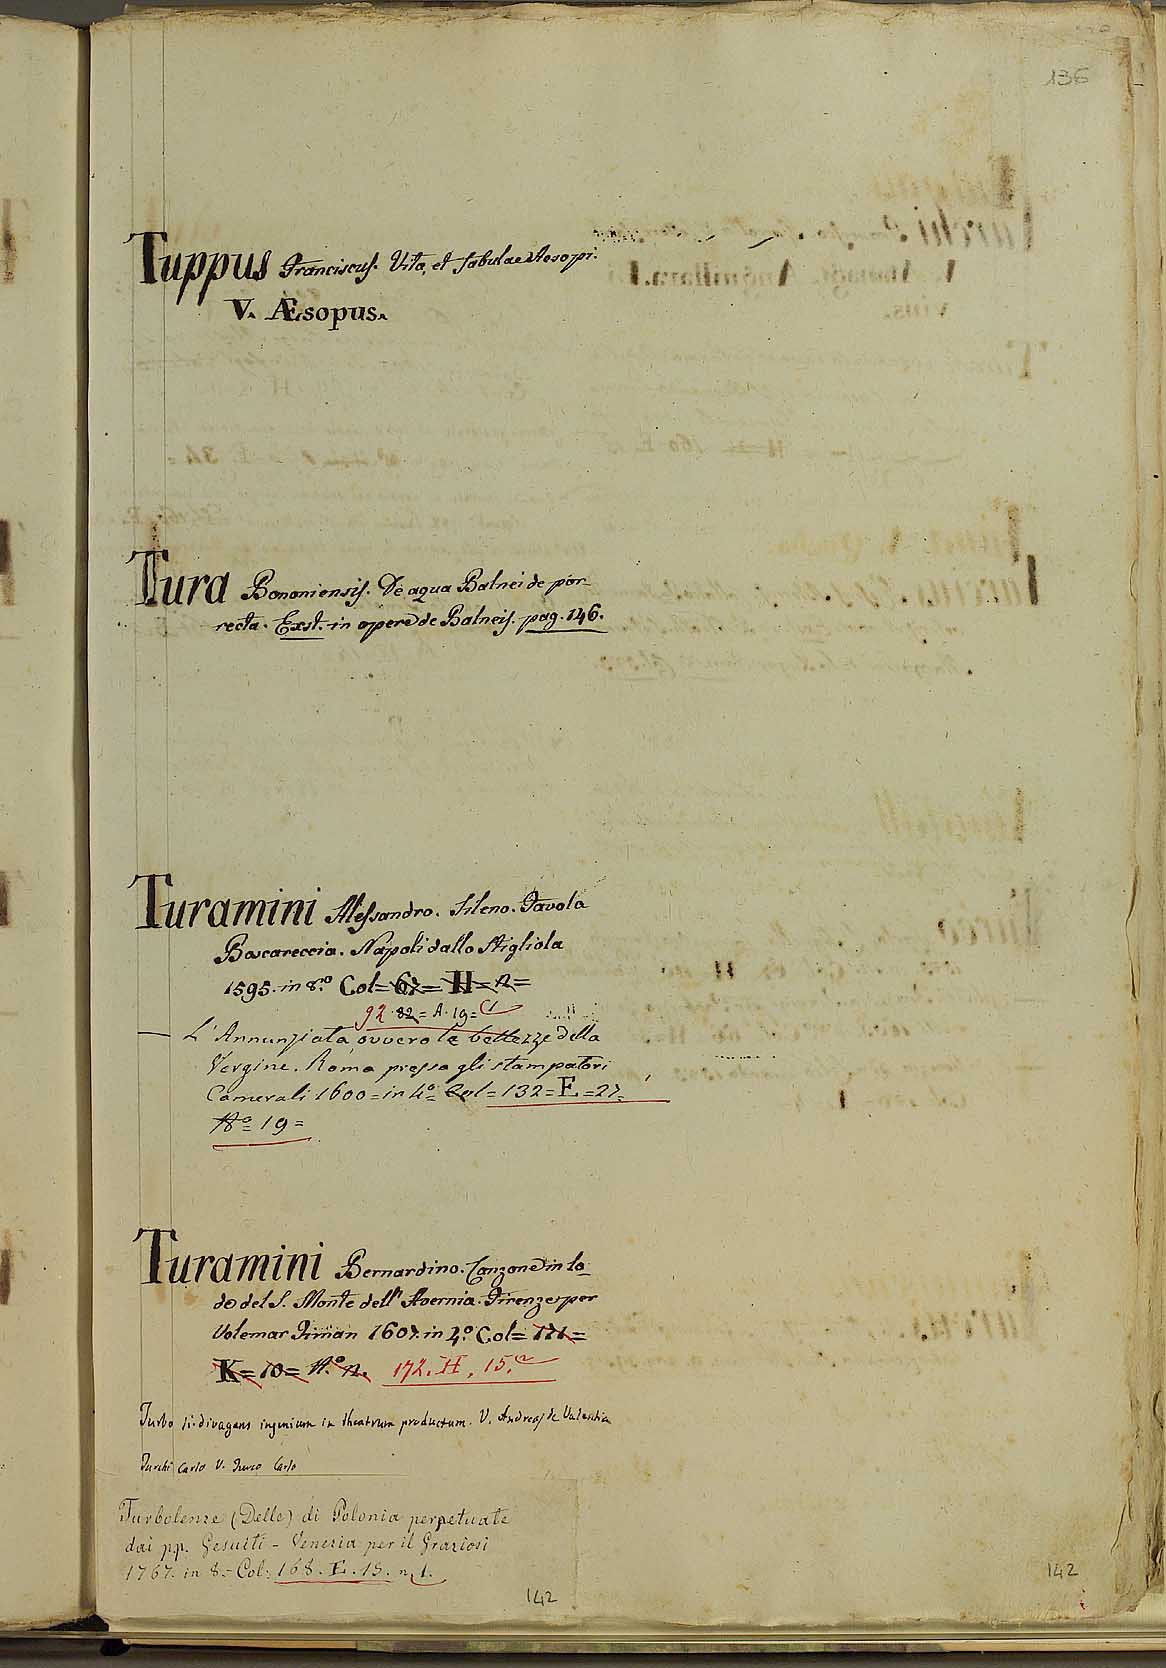 136
Tuppus Franciscus. Vita, et fabulae Aesopi.
V. Æsopus.
Tura Bononiensis. De aqua Balnei de por-
recta. Exst. in opere de Balneis. pag. 146.
Turamini Alessandro. Sileno. Favola
Boscareccia. Napoli dallo Stigliola
1595. in 8.º Col= 67= H= n=
92 82= A. 19= C
L'Annunziata, ovvero le bellezze della
Vergine. Roma presso gli stampatori
Camerali 1600= in 4º= Col= 132= E= 27=
Nº= 19=
Turamini Bernardino. Canzone in lo-
de del S. Monte dell'Avernia. Firenze per
Volcmar Timan 1607. in 4.º Col= 171=
K= 10= N.º n. 172. H. 15.
Turbo divagans ingenium in theatrum productum. V. Andreas de Valentia
Turchi Carlo V. Turco Carlo
Turbolenze (Delle) di Polonia perpetuate
dai pp. Gesuiti - Venezia per il Graziosi
1767. in 8.- Col: 168. E. 15. n. 1.
142
142